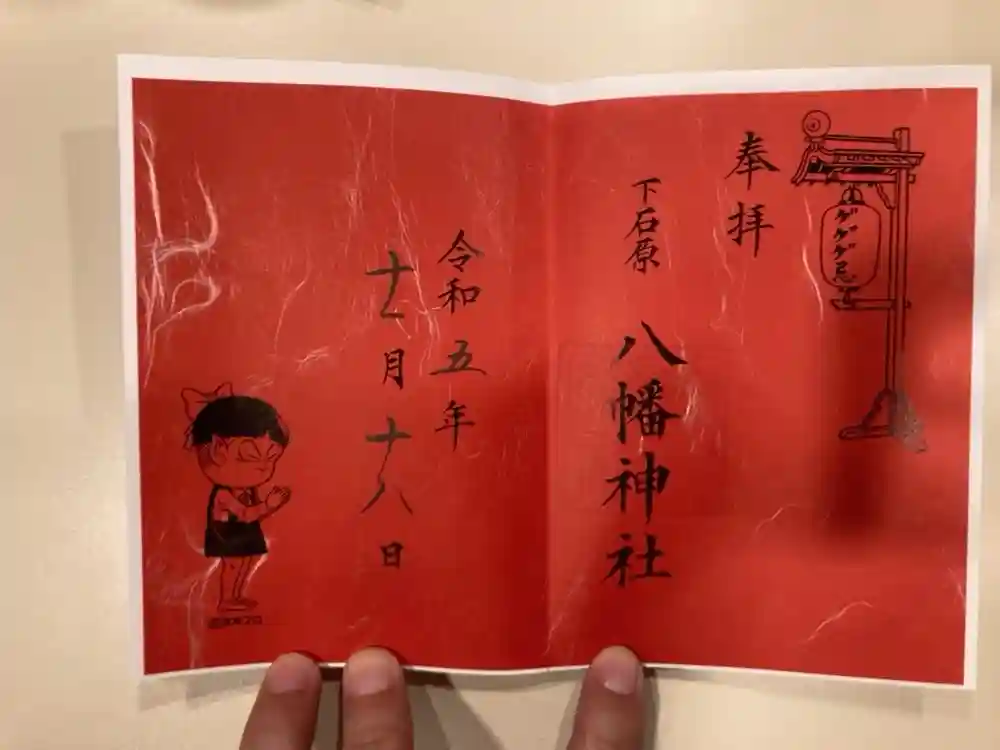 ゲゲゲ忌
奉拝
下石原 八幡神社
令和五年
十一月十八日